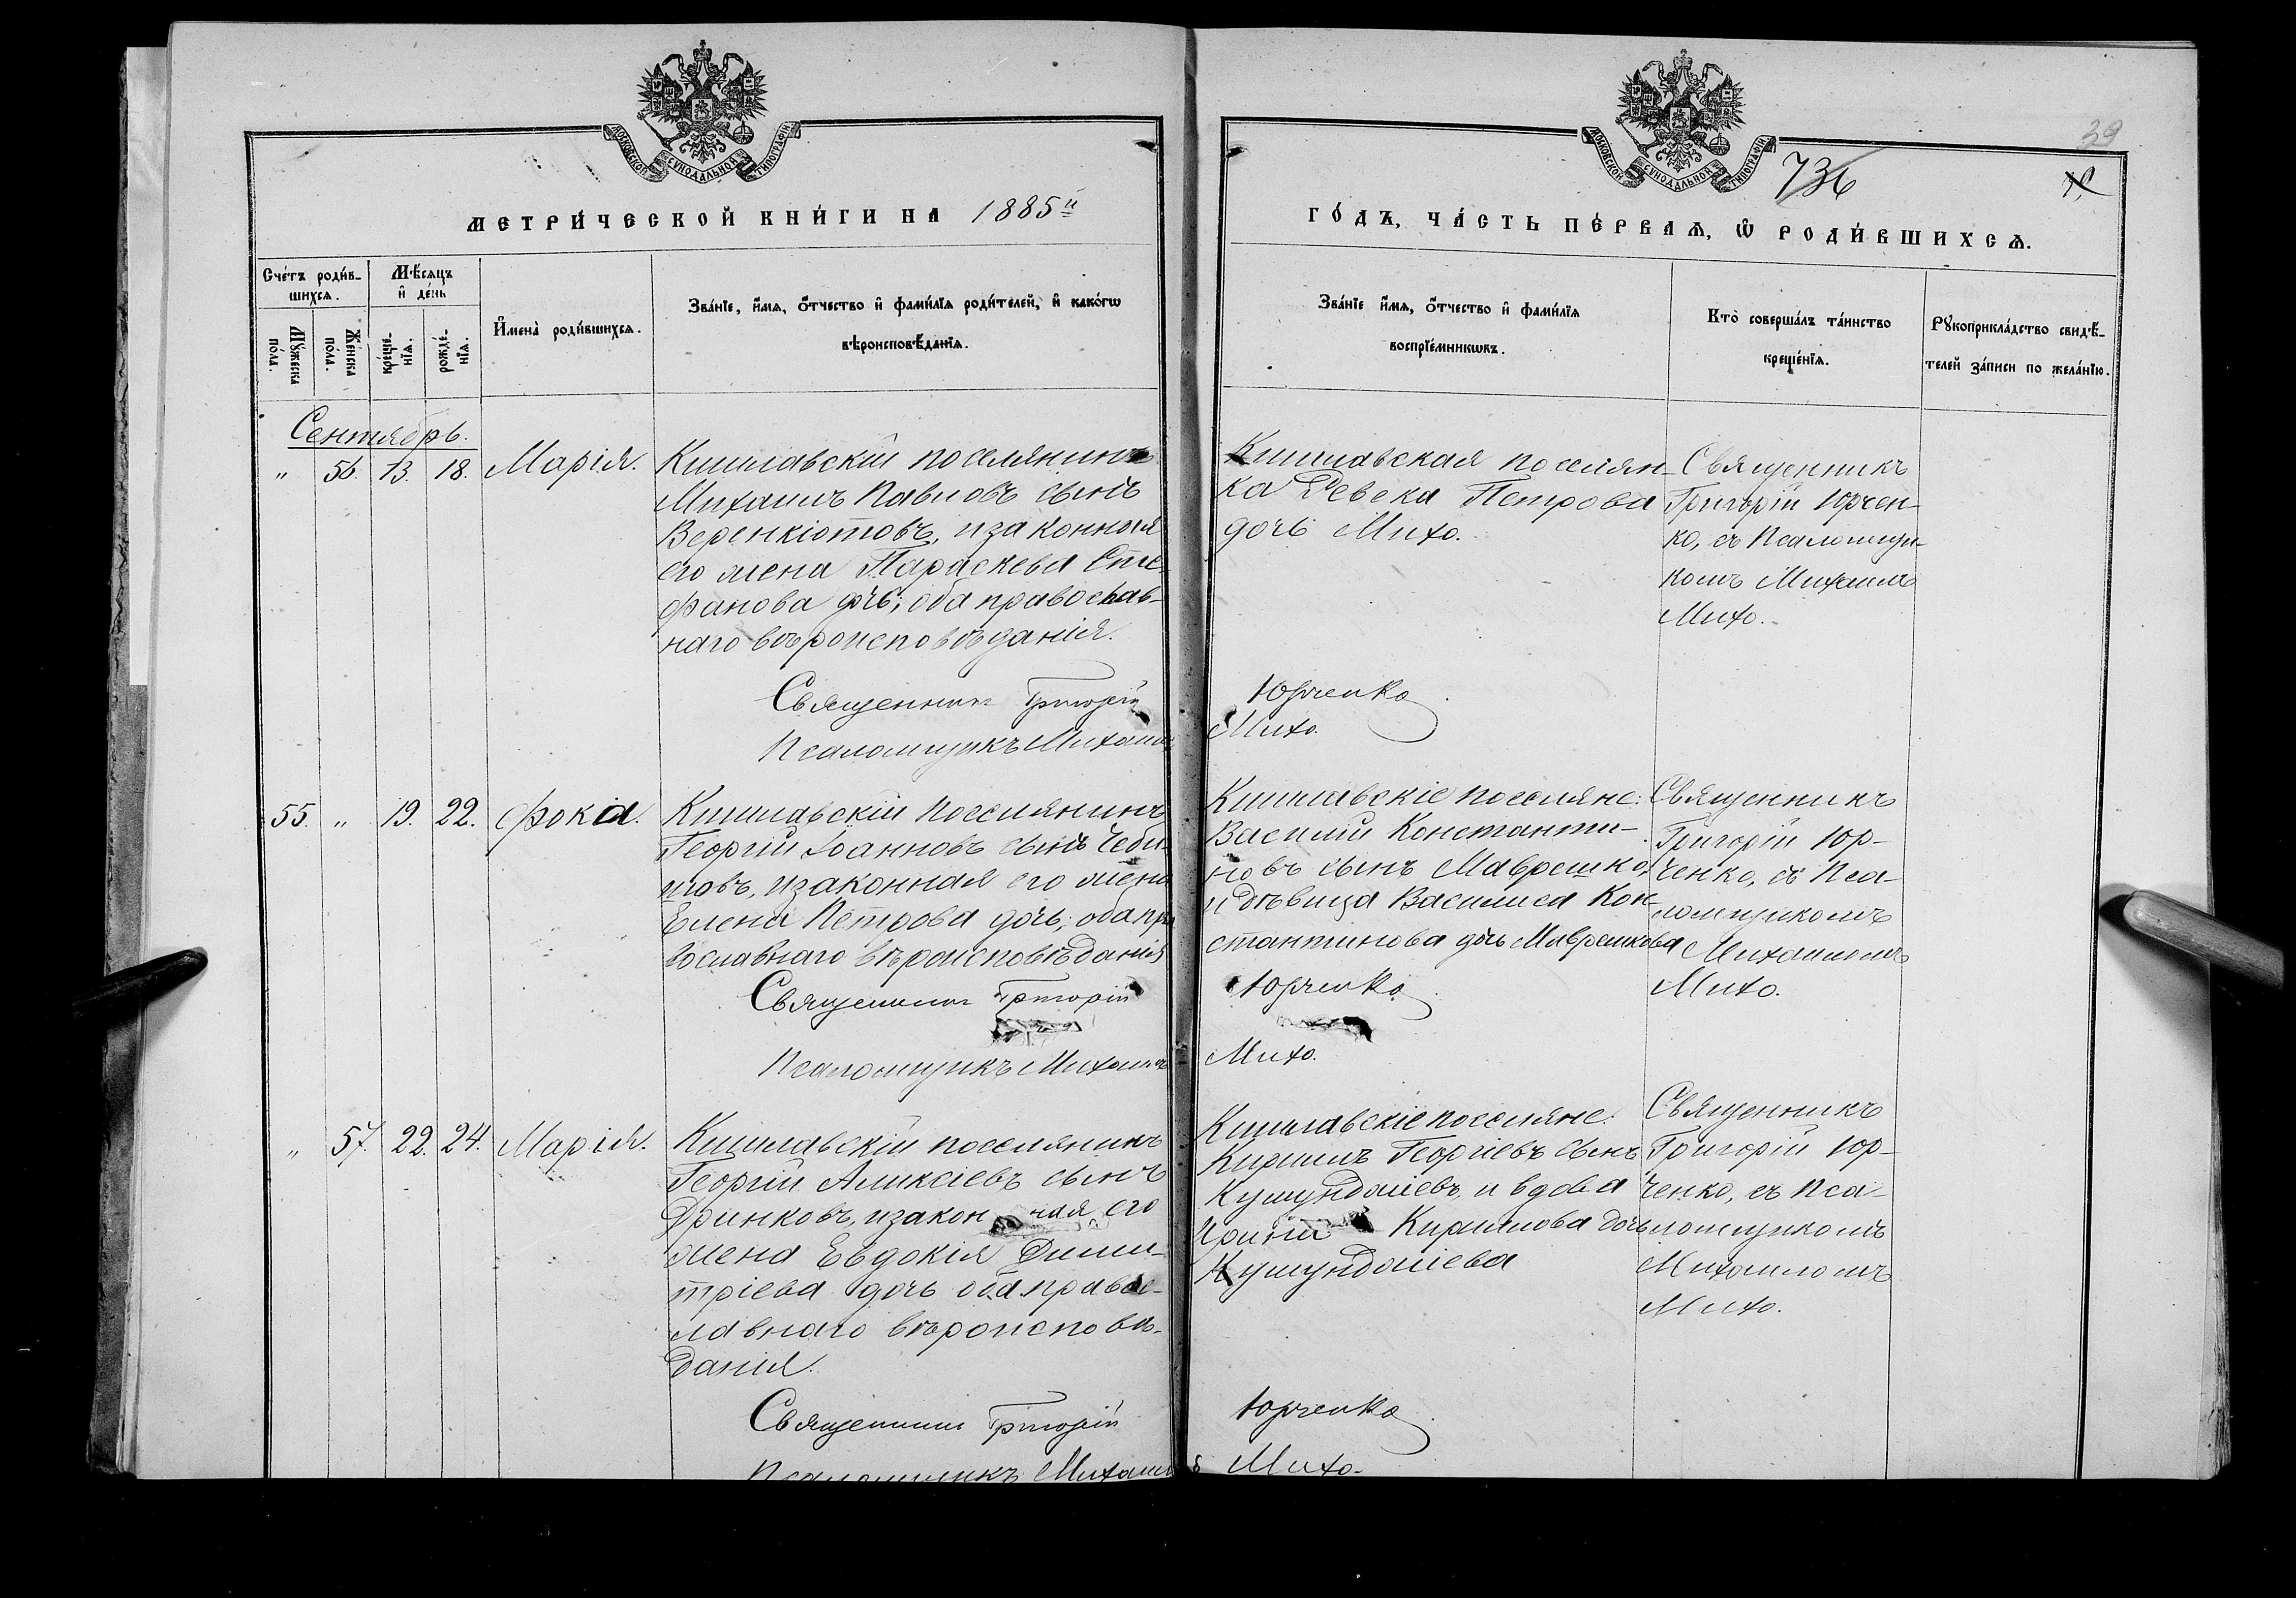 МОСКОВСКОЙ СѴНОДАЛЬНОЙ ТИПОГРАФІИ
МЕТРИ́ЧЕСКОЙ КНИ́ГИ НА 1885й
Сче́тъ роди́в-
шихсѧ.
Мѣ́сѧцъ
и҆ де́нь
И҆мена̀ роди́вшихсѧ.
Зва́нїе, и҆́мѧ, ѻ҆́тчество и҆ фами́лїѧ роди́телей, и҆ како́гѡ
вѣроисповѣ́данїѧ.
Мꙋ́жеска
по́ла.
Же́нска
по́ла.
креще́-
нїѧ.
рожде́-
нїѧ.
Сентябрь.
„ 56. 13. 18. Марія.
Кишлавскій поселянинъ
Михаилъ Павловъ сынъ
Веренкіотовъ, и законная
его жена Параскева Сте-
фанова дчь; оба православ-
наго вѣроисповѣданія.
Священник Григорій
Псаломщикъ Михаилъ
55. „ 19. 22. Фока.
Кишлавскій поселянинъ
Георгій Іоанновъ сынъ Чеби-
шовъ, и законная его жена
Елена Петрова дочь; оба пра
вославнаго вѣроисповѣданія
Священник Григорій
Псаломщикъ Михаилъ
„ 57. 22. 24. Марія.
Кишлавскій поселянинъ
Георгій Алексіевъ сынъ
Дринковъ, и закон ная его
жена Евдокія Дими-
тріева дочь оба правос-
лавнаго вѣроисповѣ-
данія.
Священник Григорій
Псаломщикъ Михаилъ
39
МОСКОВСКОЙ СѴНОДАЛЬНОЙ ТИПОГРАФІИ
736
ГО́ДЪ, ЧА́СТЬ ПЕ́РВАѦ, Ѡ҆ РОДИ́ВШИХСѦ.
Зва́нїе и҆́мѧ, ѻ҆́тчество и҆ фами́лїѧ
воспрїе́мникѡвъ.
Кто̀ соверша́лъ та́инство
креще́нїѧ.
Рꙋкоприкла́дство свидѣ́-
телей за́писи по жела́нїю.
Кишлавская поселян-
ка Ревека Петрова
дочь Михо.
Священникъ
Григорій Юрчен-
ко, съ Псаломщи-
комъ Михаиломъ
Михо.
Юрченко
Михо.
Кишлавскіе поселяне:
Василій Константи-
новъ сынъ Маврешко,
и дѣвица Василиса Кон-
стантинова дочь Маврешкова
Священникъ
Григорій Юр-
ченко, съ Пса-
ломщикомъ
Михаиломъ
Михо.
Юрченко
Михо.
Кишлавскіе поселяне:
Кирилъ Георгіевъ сынъ
Кушундоліевъ, и вдова
Ирина Кирилова дочь
Кушундоліева
Священникъ
Григорій Юр-
ченко, съ Пса-
ломщикомъ
Михаиломъ
Михо.
Юрченко
Михо.